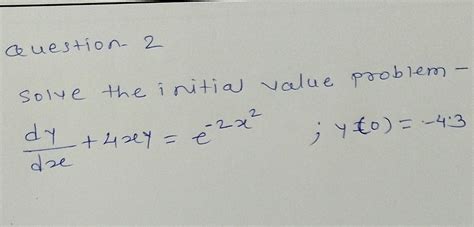 Question 2
Solve the initial value problem -
dy/dx + 4xy = e^{-2x^2} ; y(0) = -4.3